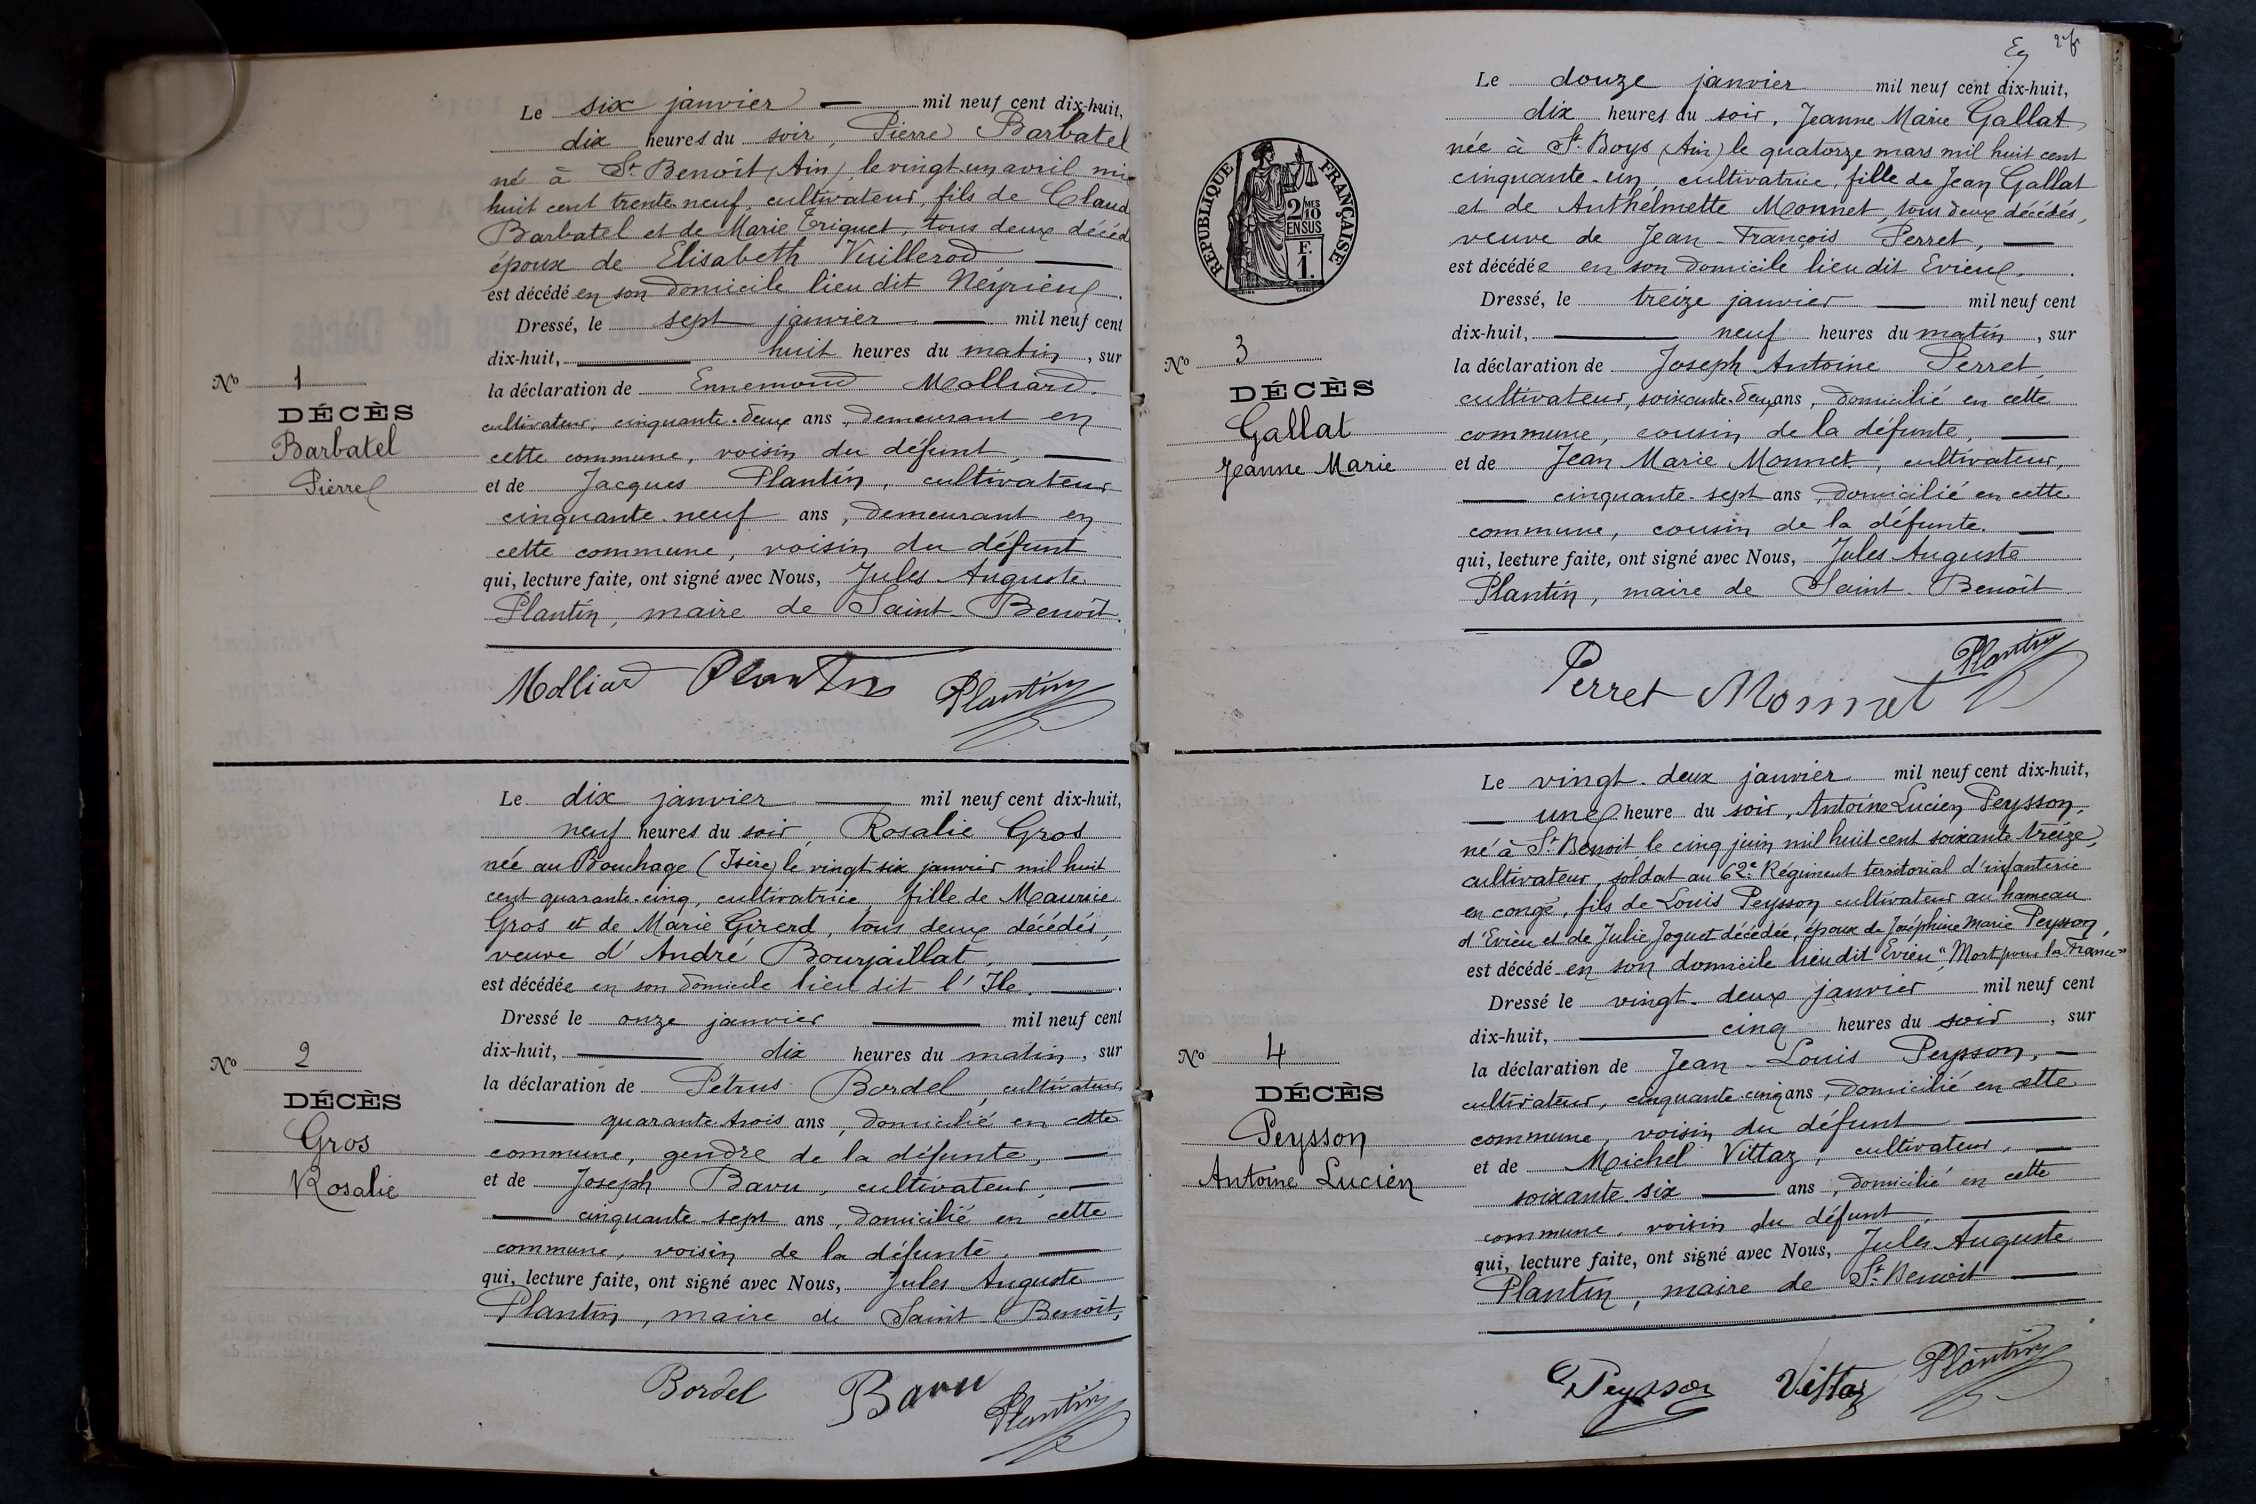 Le six janvier — mil neuf cent dix-huit,
dix heures du soir, Pierre Barbatel
né à St Benoît (Ain), le vingt-un avril mi
huit cent trente neuf, cultivateur, fils de Claud
Barbatel et de Marie Triquet, tous deux décéd
époux de Elisabeth Vuillerod —
est décédé en son domicile lieu dit Neyrieux.
Dressé, le sept janvier — mil neuf cent
dix-huit, — huit heures du matin, sur
la déclaration de Ennemond Molliard,
cultivateur, cinquante-deux ans, demeurant en
cette commune, voisin du défunt, —
et de Jacques Plantin, cultivateur
cinquante-neuf ans, demeurant en
cette commune, voisin du défunt
qui, lecture faite, ont signé avec Nous, Jules Auguste
Plantin, maire de Saint-Benoît.
No 1
DÉCÈS
Barbatel
Pierre
Molliard Plantin Plantin
Le dix janvier — mil neuf cent dix-huit,
neuf heures du soir, Rosalie Gros
née au Bouchage (Isère) le vingt-six janvier mil huit
cent quarante-cinq, cultivatrice, fille de Maurice
Gros et de Marie Girerd, tous deux décédés,
veuve d'André Bourjaillat, —
est décédée en son domicile lieu dit l'Ile. —
Dressé le onze janvier — mil neuf cent
dix-huit, — dix heures du matin, sur
la déclaration de Pétrus Bordel, cultivateur
— quarante trois ans, domicilié en cette
commune, gendre de la défunte, —
et de Joseph Bavu, cultivateur, —
— cinquante sept ans, domicilié en cette
commune, voisin de la défunte. —
qui, lecture faite, ont signé avec Nous, Jules Auguste
Plantin, maire de Saint-Benoît,
No 2
DÉCÈS
Gros
Rosalie
Bordel Bavu Plantin
Le douze janvier mil neuf cent dix-huit,
dix heures du soir, Jeanne Marie Gallat
née à St Boys (Ain) le quatorze mars mil huit cent
cinquante-un, cultivatrice, fille de Jean Gallat
et de Anthelmette Monnet, tous deux décédés,
veuve de Jean-François Perret, —
est décédée en son domicile lieu dit Evieux.
Dressé, le treize janvier — mil neuf cent
dix-huit, — neuf heures du matin, sur
la déclaration de Joseph Antoine Perret,
cultivateur, soixante-deux ans, domicilié en cette
commune, cousin de la défunte, —
et de Jean Marie Monnet, cultivateur,
— cinquante-sept ans, domicilié en cette
commune, cousin de la défunte. —
qui, lecture faite, ont signé avec Nous, Jules Auguste
Plantin, maire de Saint-Benoît
RÉPUBLIQUE FRANÇAISE
2/MES
10
EN SUS
F.
1.
No 3
DÉCÈS
Gallat
Jeanne Marie
Perret Monnet Plantin
Le vingt-deux janvier mil neuf cent dix-huit,
— une heure du soir, Antoine Lucien Peysson,
né à St Benoît le cinq juin mil huit cent soixante treize,
cultivateur, soldat au 62e Régiment territorial d'infanterie
en congé, fils de Louis Peysson cultivateur au hameau
d'Evieu et de Julie Joguet décédée, époux de Joséphine Marie Peysson,
est décédé en son domicile lieu dit Evieu, "Mort pour la France"
Dressé le vingt-deux janvier mil neuf cent
dix-huit, — cinq heures du soir, sur
la déclaration de Jean-Louis Peysson, —
cultivateur, cinquante-cinq ans, domicilié en cette
commune, voisin du défunt —
et de Michel Vittaz, cultivateur, —
soixante six — ans, domicilié en cette
commune, voisin du défunt, —
qui, lecture faite, ont signé avec Nous, Jules Auguste
Plantin, maire de St Benoît —
No 4
DÉCÈS
Peysson
Antoine Lucien
Peysson Vittaz Plantin